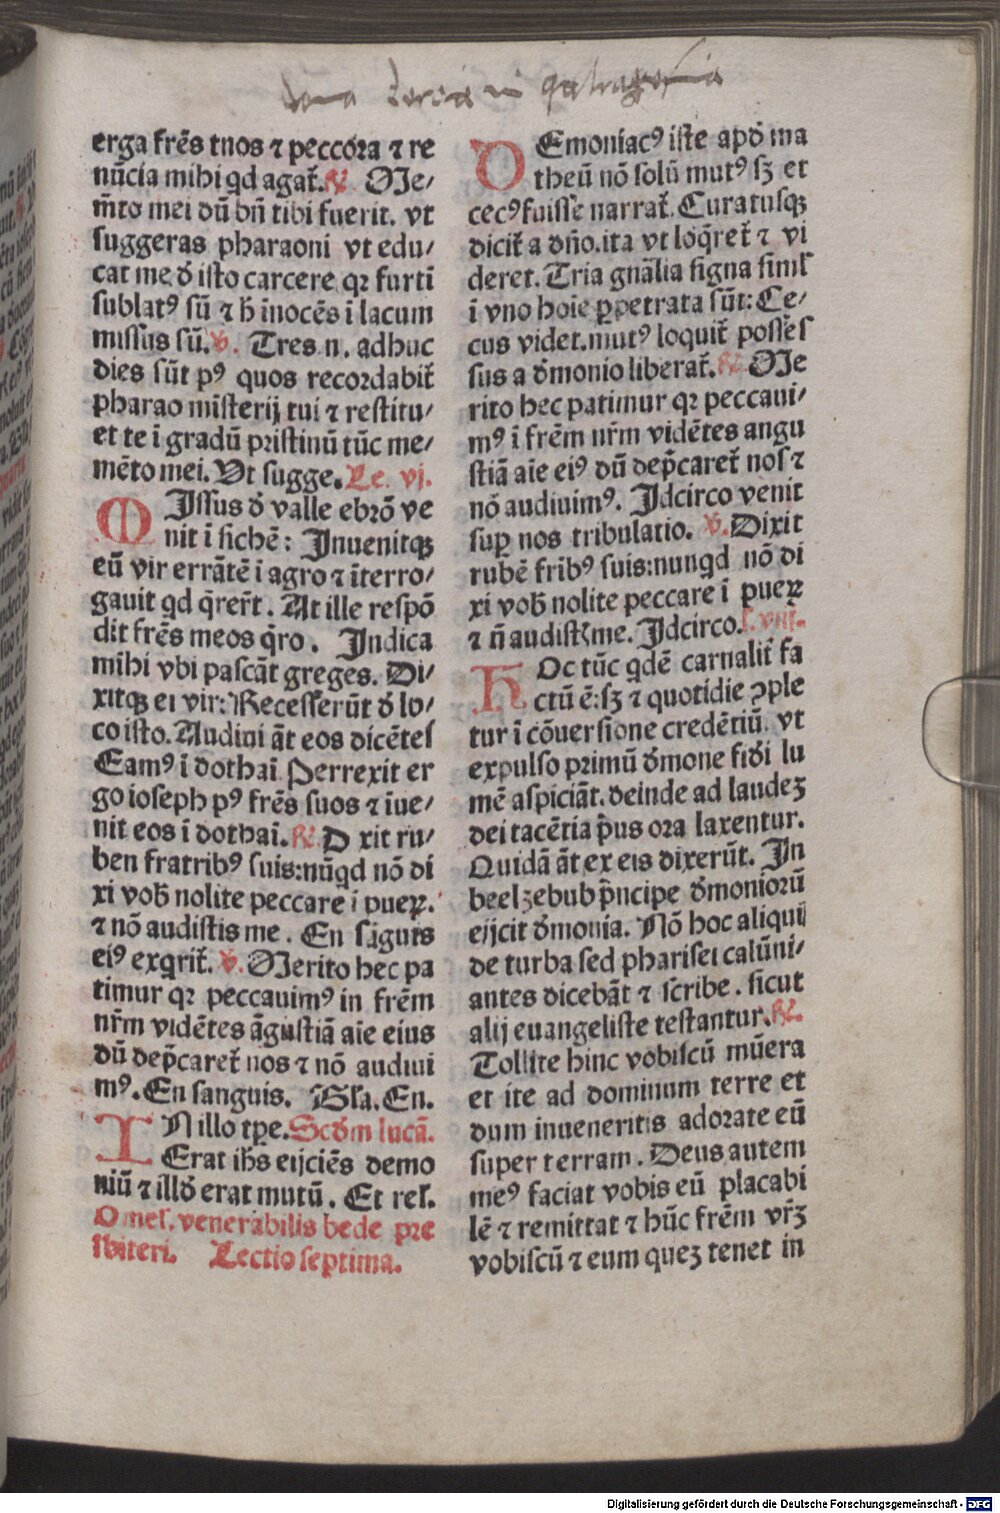 erga frēs tuos ⁊ peccora ⁊ re
nūcia mihi qd agat̄. ℟. Me/
m̄to mei dū bn̄ tibi fuerit. vt
suggeras pharaoni vt edu/
cat me d̄ isto carcere qꝛ furti
sublatꝰ sū ⁊ h̄ inocēs i lacum
missus sū. ℣. Tres n. adhuc
dies sūt pꝰ quos recordabit̄
pharao misterij tui ⁊ restitu/
et te i gradū pristinū tūc me/
mēto mei. Vt sugge. Le. vj.
MIssus d̄ valle ebrō ve
nit i sichē: Inuenitqꝫ
eū vir errātē i agro ⁊ īterro/
gauit qd q̄rer̄t. At ille respō
dit frēs meos q̄ro. Indica
mihi vbi pascāt greges. Di/
xitqꝫ ei vir: Recesserūt d̄ lo/
co isto. Audiui āt eos dicētes
Eamꝰ i dothaī Perrexit er
go ioseph pꝰ frēs suos ⁊ īue/
nit eos i dothaī. ℟. D xit ru/
ben fratribꝰ suis: nūqd nō di
xi vob̄ nolite peccare i pueꝝ.
⁊ nō audistis me. En sāguis
eiꝰ exqrit̄. ℣. Merito hec pa
timur qꝛ peccauimꝰ in frēm
nr̄m vidētes āgustiā aīe eius
dū dep̄caret̄ nos ⁊ nō audiui
mꝰ. En sanguis. Gl̄a. En.
IN illo tꝑe. Scd̄m lucā.
Erat ih̄s eijciēs demo
niū ⁊ illd̄ erat mutū. Et rel.
Omel. venerabilis bede pre
sbiteri. Lectio septima.
DEmoniacꝰ iste apd̄ ma
theū nō solū mutꝰ sꝫ et
cecꝰ fuisse narrat̄. Curatusqꝫ
dicit̄ a dn̄o. ita vt loq̄ret̄ ⁊ vi
deret. Tria gnālia signa siml̄
i vno hoīe ꝑpetrata sūt: Ce/
cus videt. mutꝰ loquit̄ possēs
sus a dm̄onio liberat̄. ℟. Me
rito hec patimur qꝛ peccaui/
mꝰ i frēm nr̄m vidētes angu
stiā aīe eiꝰ dū dep̄caret̄ nos ⁊
nō audiuimꝰ. Idcirco venit
suꝑ nos tribulatio. ℣. Dixit
rubē fribꝰ suis: nunqd nō di
xi vob̄ nolite peccare i pueꝝ
⁊ n̄ audistꝭ me. Idcirco. l. viij.
HOc tūc qdē carnalit̄ fa
ctū ē: sꝫ ⁊ quotidie ꝯple
tur i cōuersione credētiū. vt
expulso primū dm̄one fid̄i lu
mē aspiciāt. deinde ad laudeꝫ
dei tacētia p̄us ora laxentur.
Quidā āt ex eis dixerūt. In
beelzebub p̄ncipe dm̄oniorū
eijcit dm̄onia. Nō hoc aliqui
de turba sed pharisei calūni/
antes dicebāt ⁊ scribe. sicut
alij euangeliste testantur. ℟.
Tollite hinc vobiscū mūera
et ite ad dominum terre et
dum inueneritis adorate eū
super terram. Deus autem
meꝰ faciat vobis eū placabi
lē ⁊ remittat ⁊ hūc frēm vr̄ꝫ
vobiscū ⁊ eum queꝫ tenet in
Digitalisierung gefördert durch die Deutsche Forschungsgemeinschaft - DFG